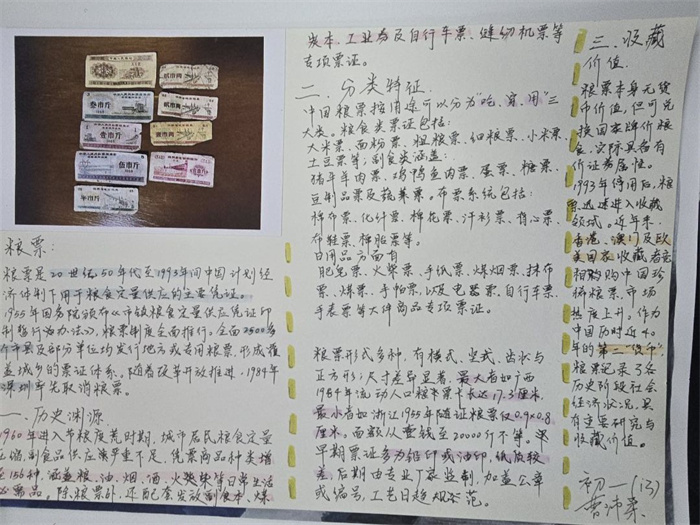 叁市斤
贰市两
壹市斤
壹市两
伍市斤
半市斤
粮票:
粮票是20世纪50年代至1993年间中国计划经
济体制下用于粮食定量供应的主要凭证。
1955年国务院颁布《市镇粮食定量供应凭证印
制暂行办法》,粮票制度全面推行。全国2500多
个市县及部分单位均发行地方或专用粮票,形成覆
盖城乡的票证体系。随着改革开放推进,1984年
深圳率先取消粮票。
一、历史渊源
1960年进入节粮度荒时期,城市居民粮食定量
压缩,副食品供应严重不足,凭票商品种类增
至156种,涵盖粮、油、烟、酒、火柴等日常生活
必需品,除粮票外,还配套发放副食本、煤
炭本、工业券及自行车票、缝纫机票等
专项票证。
二、分类特征
中国粮票按用途可以分为“吃、穿、用”三
大类。粮食类票证包括:
大米票、面粉票、粗粮票、细粮票、小米票、
土豆票等;副食类涵盖:
猪牛羊肉票、鸡鸭鱼肉票、蛋票、糖票、
豆制品票及蔬菜票。布票系统包括:
棉布票、化纤票、棉花票、汗衫票、背心票、
布鞋票、棉胎票等。
日用品方面有
肥皂票、火柴票、手纸票、煤烟票、抹布
票、煤票、手帕票、以及电器票、自行车票、
手表票等大件商品专项票证。
粮票形式多种,有横式、竖式、齿状与
正方形;尺寸差异显著,最大者如广西
1954年流动人口购米票卡长达17.3厘米,
最小者如浙江1955年随证粮票仅0.9×0.8
厘米。面额从壹钱至20000斤不等。
早期票证多为铅印或油印,纸质较
差;后期由专业厂家监制,加盖公章
或编号,工艺日趋规范。
三、收藏
价值
粮票本身无货
币价值,但可兑
换国家牌价粮
食,实际具备有
价证券属性。
1993年停用后,粮
票迅速进入收藏
领域。近年来
香港、澳门及欧
美国家收藏者竞
相购购中国珍
稀粮票,市场
热度上升。作为
中国历时近40
年的“第二货币”,
粮票记录了各
历史阶段社会
经济状况,具
有重要研究与
收藏价值。
初一(13)